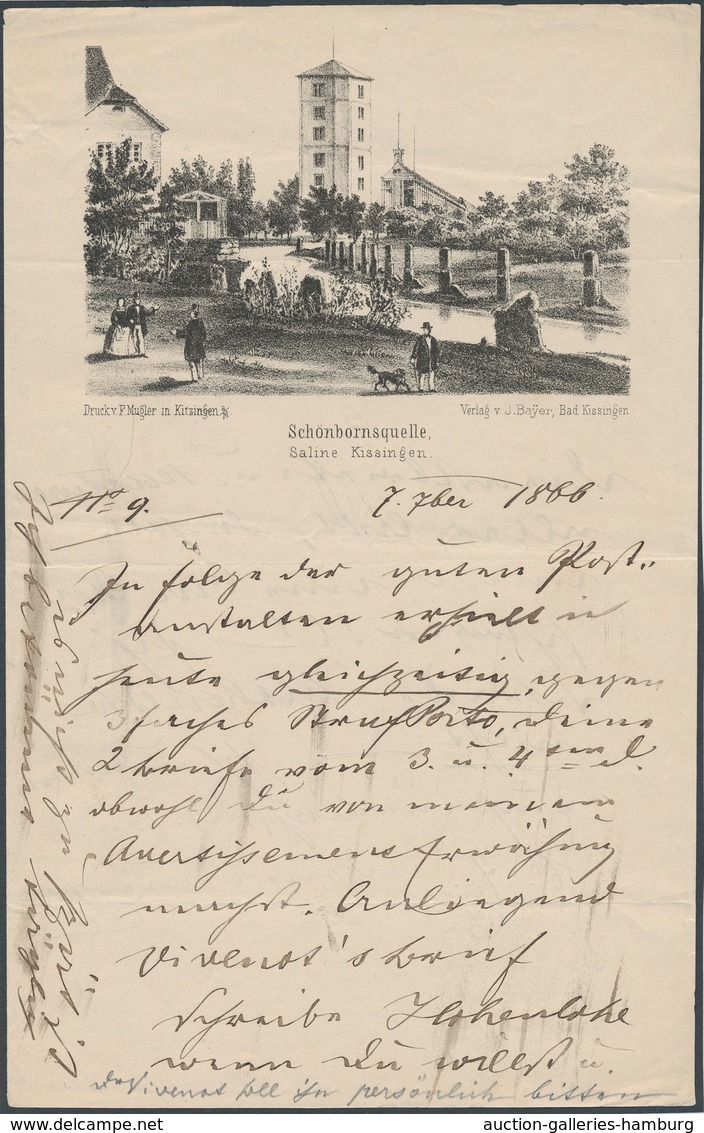 Druck v. F. Mugler in Kitzingen a/M.
Verlag v. J. Bayer, Bad Kissingen
Schönbornsquelle,
Saline Kissingen.
No 9.
7. 7ber 1866.
In folge der guten Post-
anstalten erhielt ich
heute gleichzeitig, gegen
3faches Straf Porto, deine
2 briefe vom 3. u. 4ten d.
obwohl du von meinem
Avertissement Erwähnung
machst. Anliegend
Vivenot's brief
schreibe Hohenlohe
wenn du willst u.
Vivenot soll ihn persönlich bitten
auction-galleries-hamburg